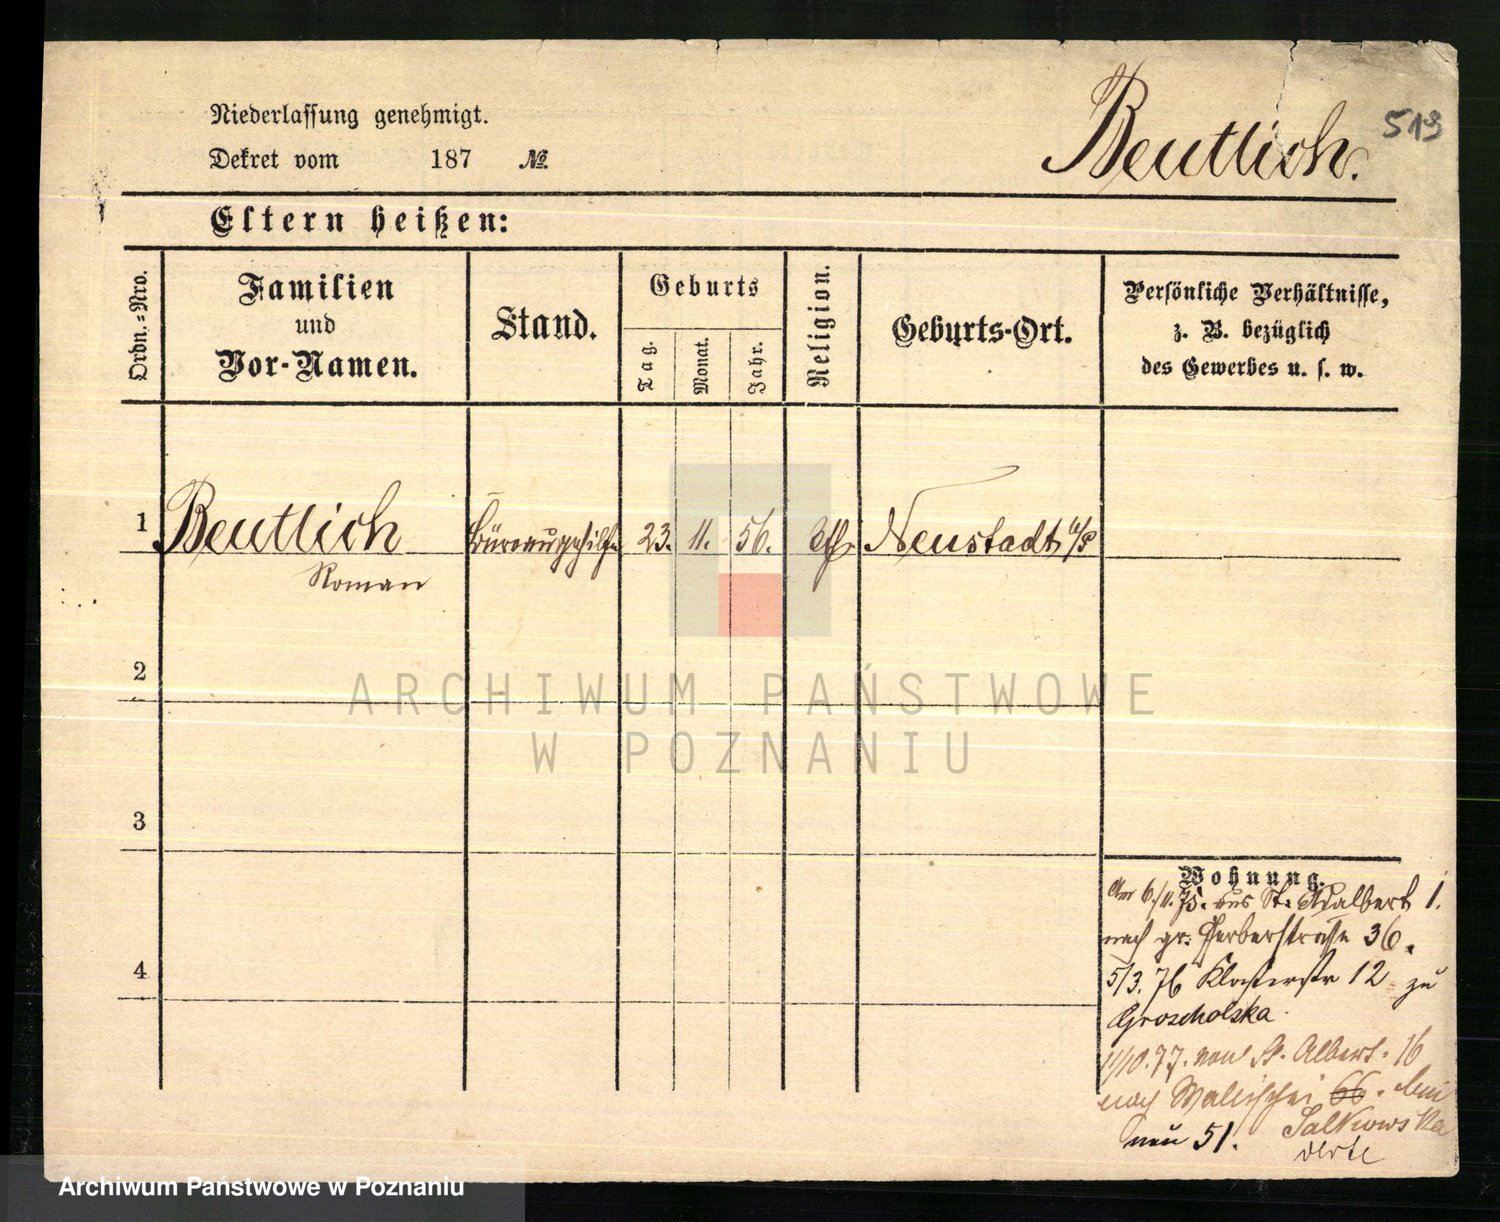 Niederlassung genehmigt.
Dekret vom 187 №
Beutlich.
519
Eltern heißen:
Ordn.-Nro.
Familien
und
Vor-Namen.
Stand.
Geburts
Tag.
Monat.
Jahr.
Religion.
Geburts-Ort.
Persönliche Verhältnisse,
z. B. bezüglich
des Gewerbes u. s. w.
1 Beutlich Büreaugehilfe 23. 11. 56. Neustadt a/P
Roman
2
ARCHIWUM PAŃSTWOWE
W POZNANIU
3
Wohnung.
6/11. 75. aus St. Adalbert 1.
nach gr. Gerberstrasse 36.
5/3. 76 Klosterstr 12 zu
Groscholska
11/10. 77. von St. Albert. 16
nach Wallischei 66. bei
Salkowska
neu 51.
4
Archiwum Państwowe w Poznaniu